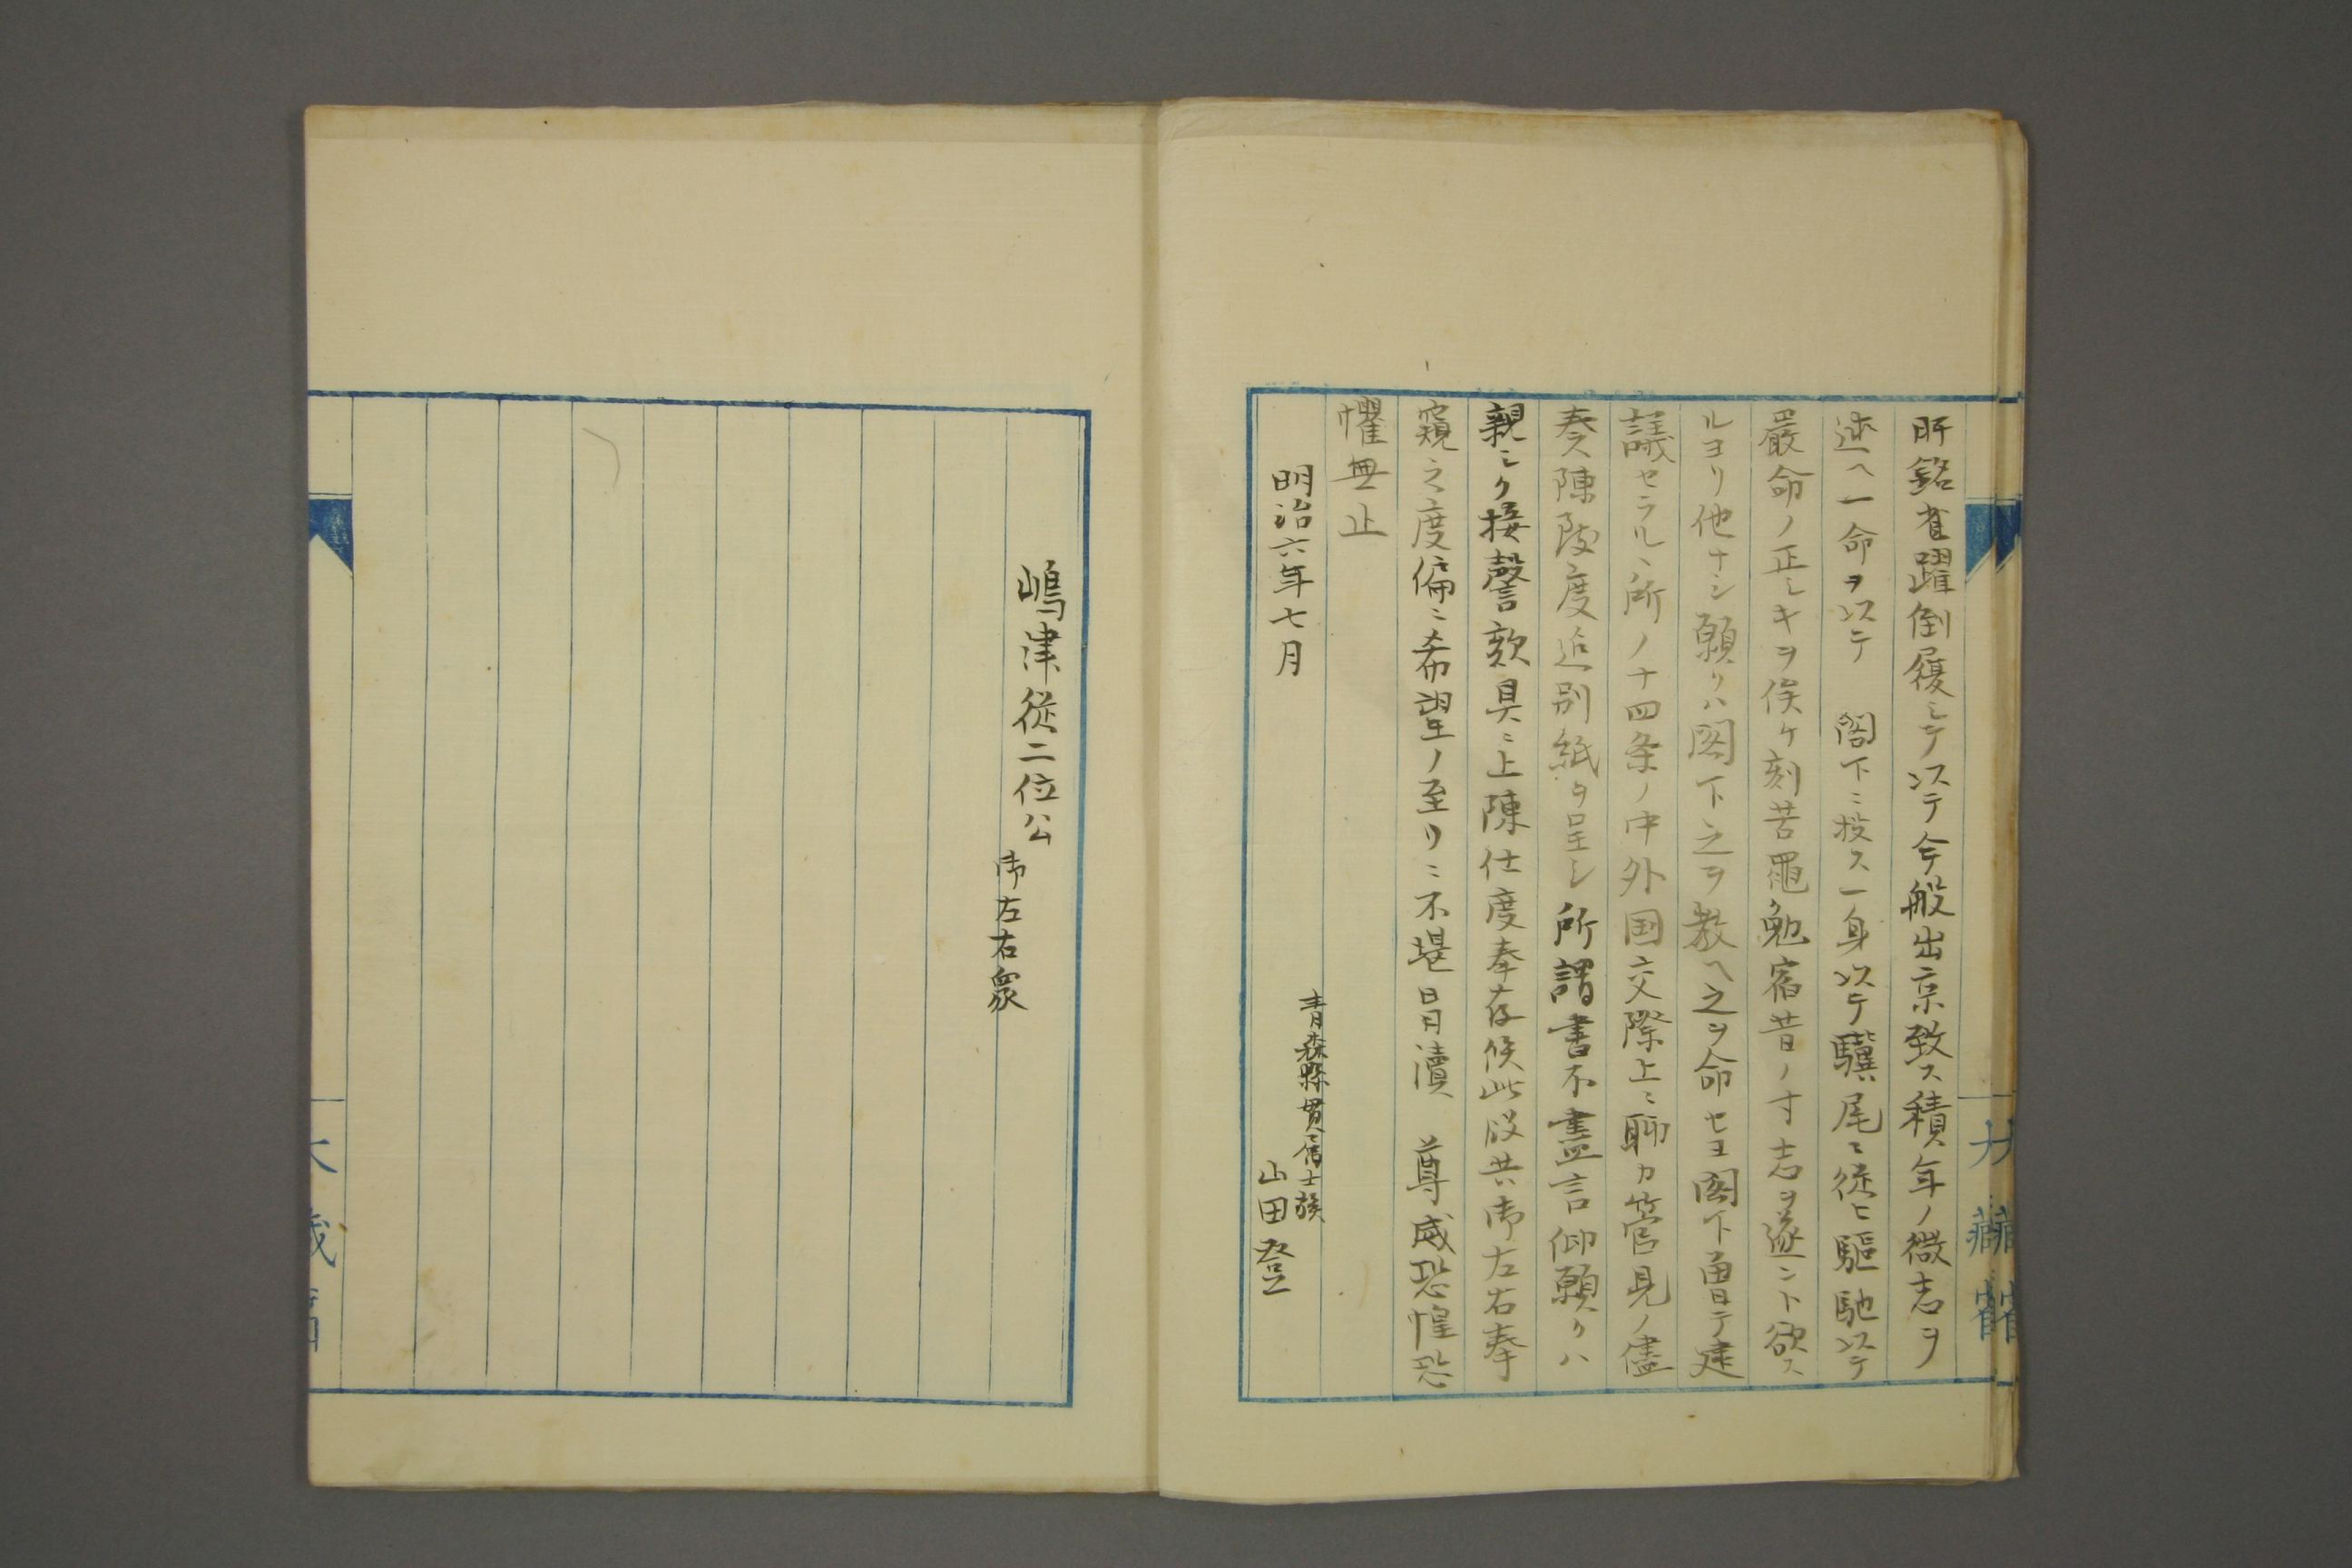 肝銘雀躍倒履シテ以テ今般出京致ス積年ノ微志ヲ
述ヘ一命ヲ以テ　閣下ニ投ス一身以テ驥尾ニ従ヒ駆馳以テ
嚴命ノ正シキヲ俟ケ刻苦黽勉宿昔ノ寸志ヲ遂ント欲ス
ルヨリ他ナシ願クハ閣下之ヲ教ヘ之ヲ命セヨ閣下曽テ建
議セラルヽ所ノ十四条ノ中外国交際上ニ聊カ管見ノ儘
奏陳致度迠別紙ヲ呈シ所謂書不盡言仰願クハ
親シク接謦欬具ニ上陳仕度奉存候此段共御左右奉
窺之度偏ニ希望ノ至リニ不堪冒瀆　尊威恐惶恐
懼無止
明治六年七月
青森縣貫属士族
山田登
嶋津従二位公
御左右衆
大藏省